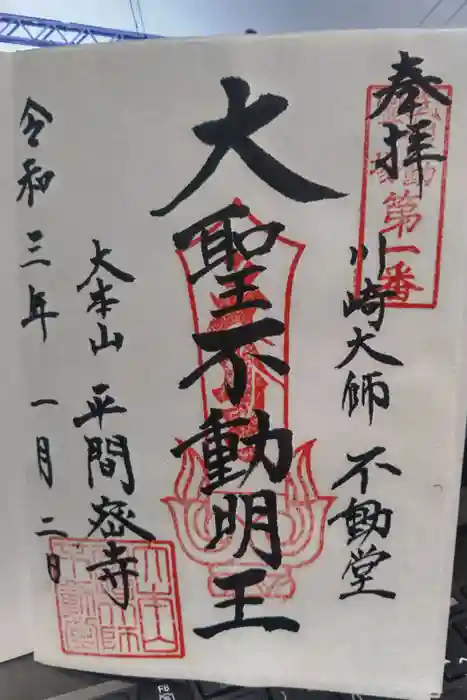 奉拝
第一番
川崎大師 不動堂
大聖不動明王
大本山 平間密寺
令和三年 一月二日